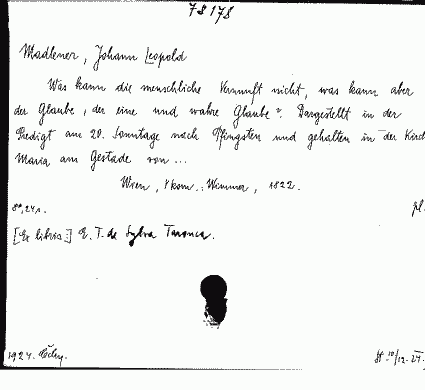 78178
Madlener, Johann Leopold
Was kann die menschliche Vernunft nicht, was kann aber
der Glaube, der eine und wahre Glaube? Dargestellt in der
Predigt am 20. Sonntage nach Pfingsten und gehalten in der Kirch
Maria am Gestade von ...
Wien, Wimmer, 1822.
8°, 24 s.
[Ex libris:] E. T. de Sylva Tarouca.
1924.